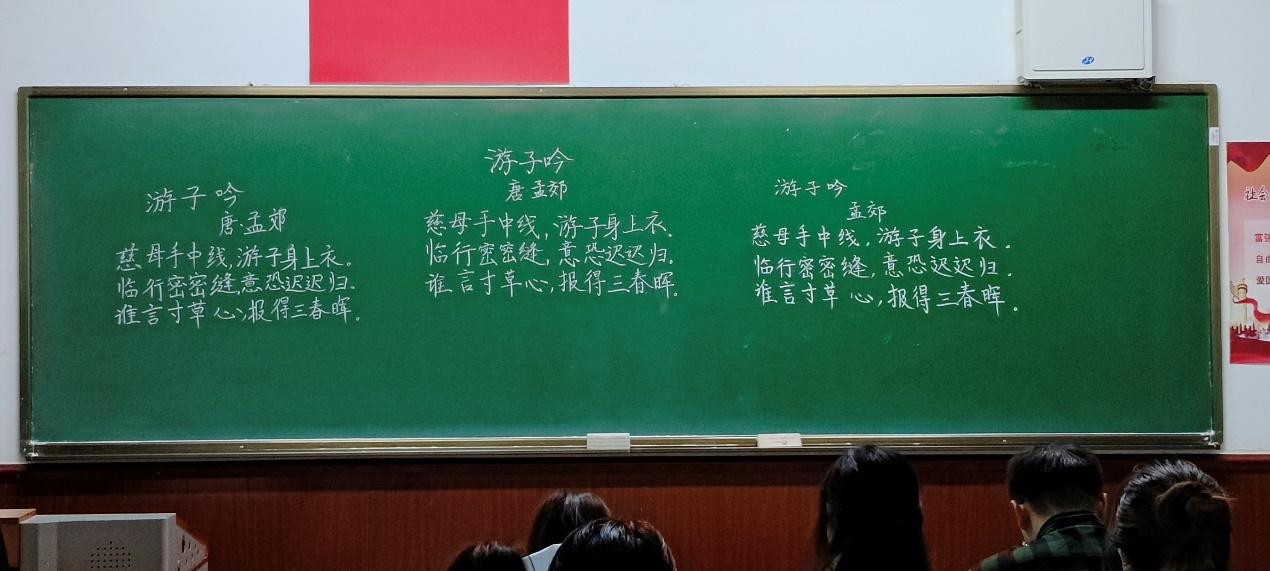 游子吟
唐·孟郊
慈母手中线,游子身上衣。
临行密密缝,意恐迟迟归.
谁言寸草心,报得三春晖.
游子吟
唐 孟郊
慈母手中线,游子身上衣.
临行密密缝,意恐迟迟归.
谁言寸草心,报得三春晖.
游子吟
孟郊
慈母手中线,游子身上衣.
临行密密缝,意恐迟迟归.
谁言寸草心,报得三春晖.
社会
富强
自由
爱国